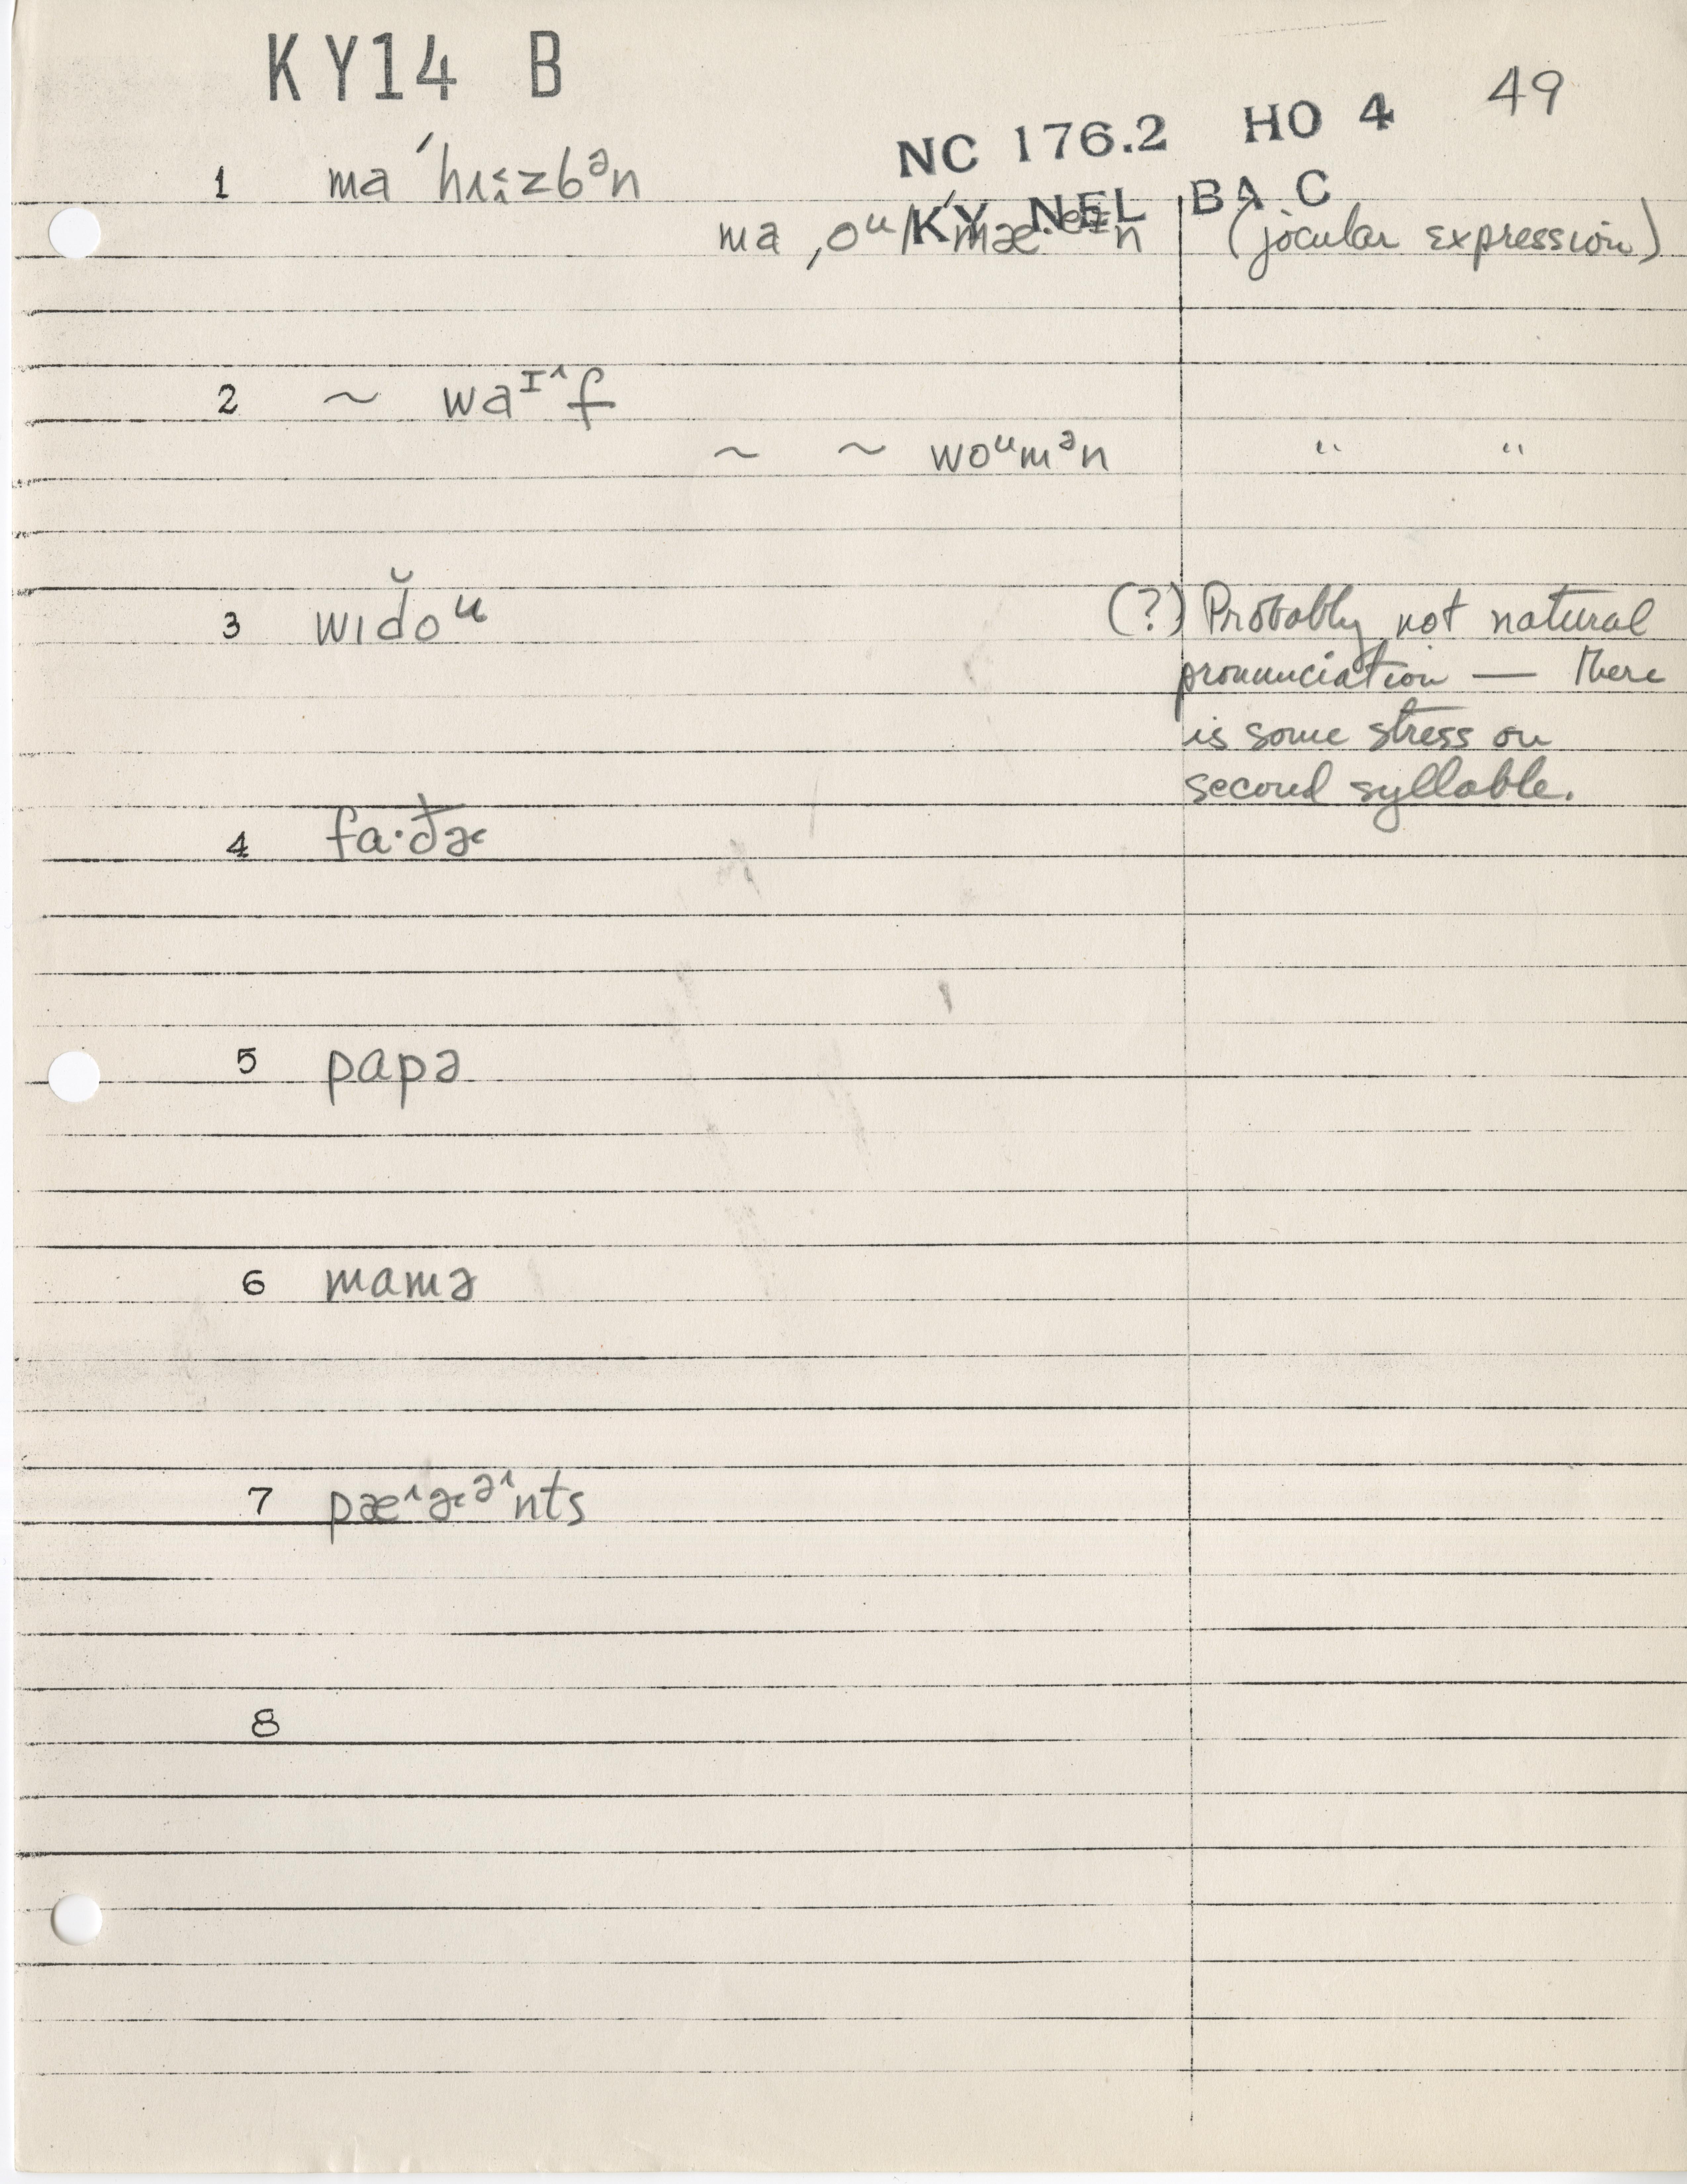 KY14 B
49
NC 176.2 HO 4
KY NEL BA C
1 ma
ma ˌoᵘl (jocular expression)
2 ~ waᶦ˄f
~ ~ woᵘmᵊn " "
3 wɪd̆oᵘ (?) Probably not natural
pronunciation — there
is some stress on
second syllable.
4 fa·ðɚ
5 papə
6 mamə
7 pæ˄ɚᵊ˄nts
8